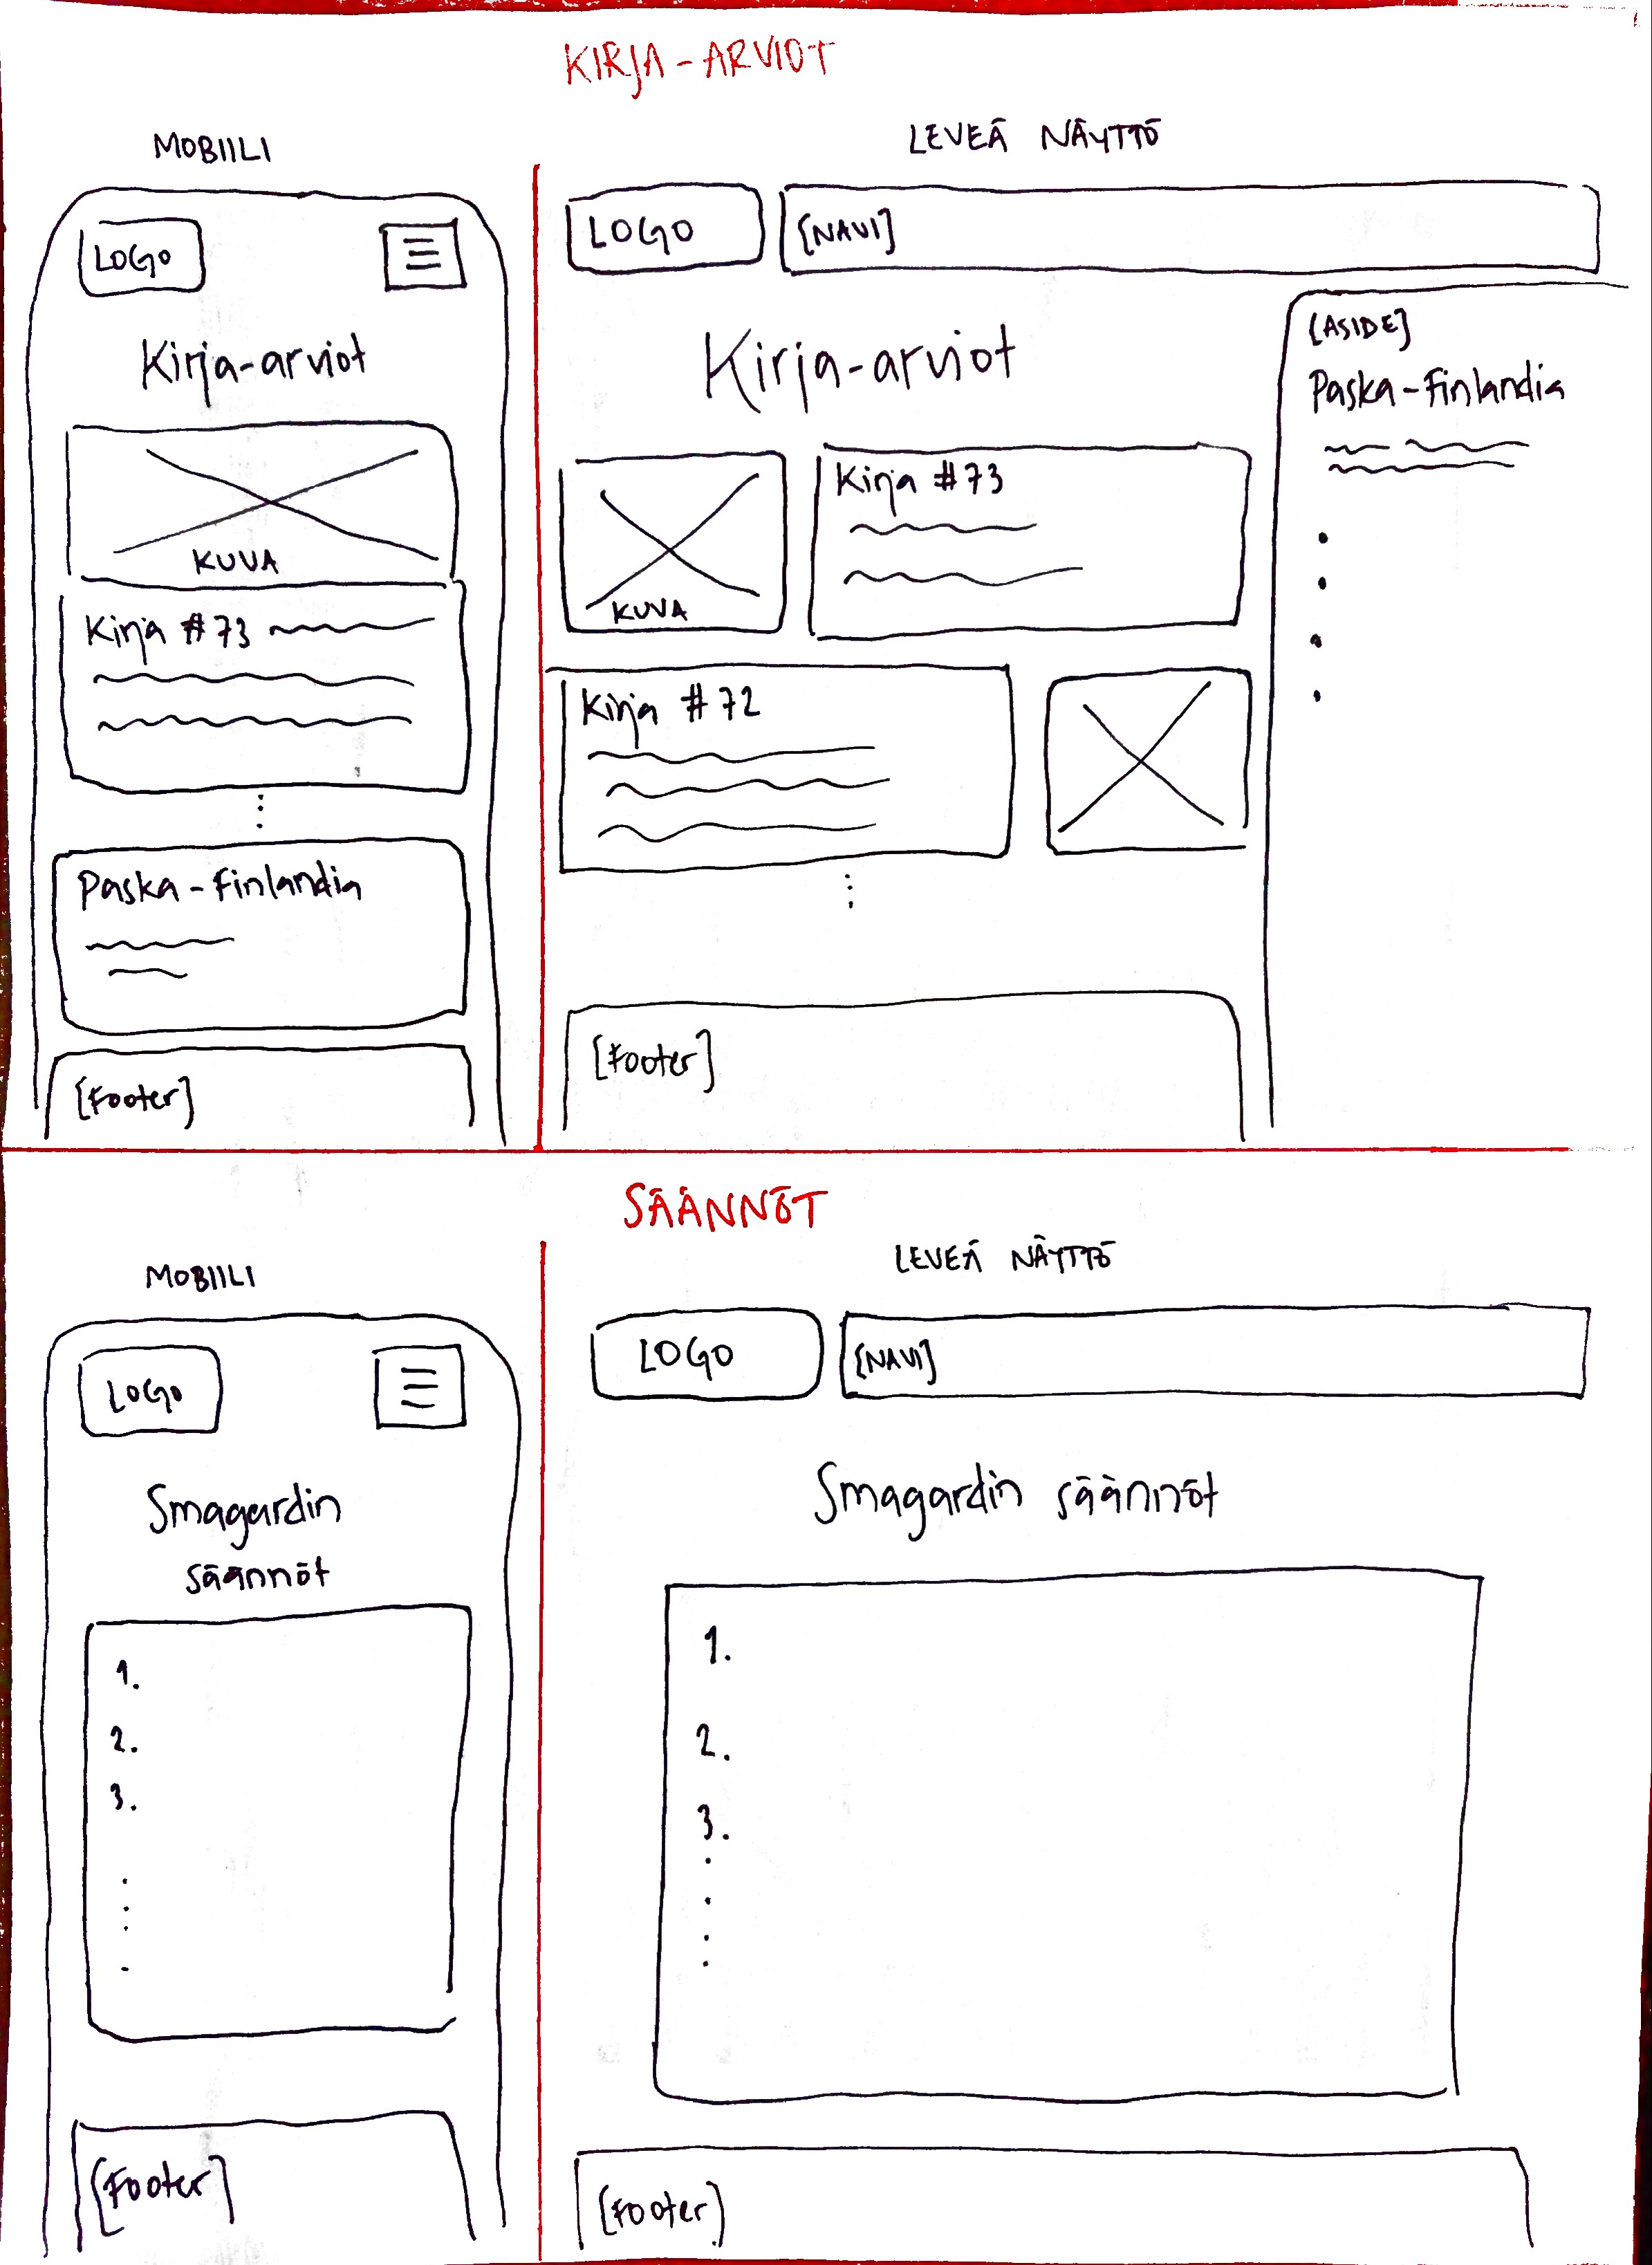 KIRJA-ARVIOT
MOBIILI
LOGO
Kirja-arviot
KUVA
Kirja #73
Paska-Finlandia
[Footer]
LEVEÄ NÄYTTÖ
LOGO
[NAVI]
Kirja-arviot
KUVA
Kirja #73
Kirja #72
[Footer]
[ASIDE]
Paska-Finlandia
SÄÄNNÖT
MOBIILI
LOGO
Smagardin
säännöt
1.
2.
3.
[Footer]
LEVEÄ NÄYTTÖ
LOGO
[NAVI]
Smagardin säännöt
1.
2.
3.
[Footer]